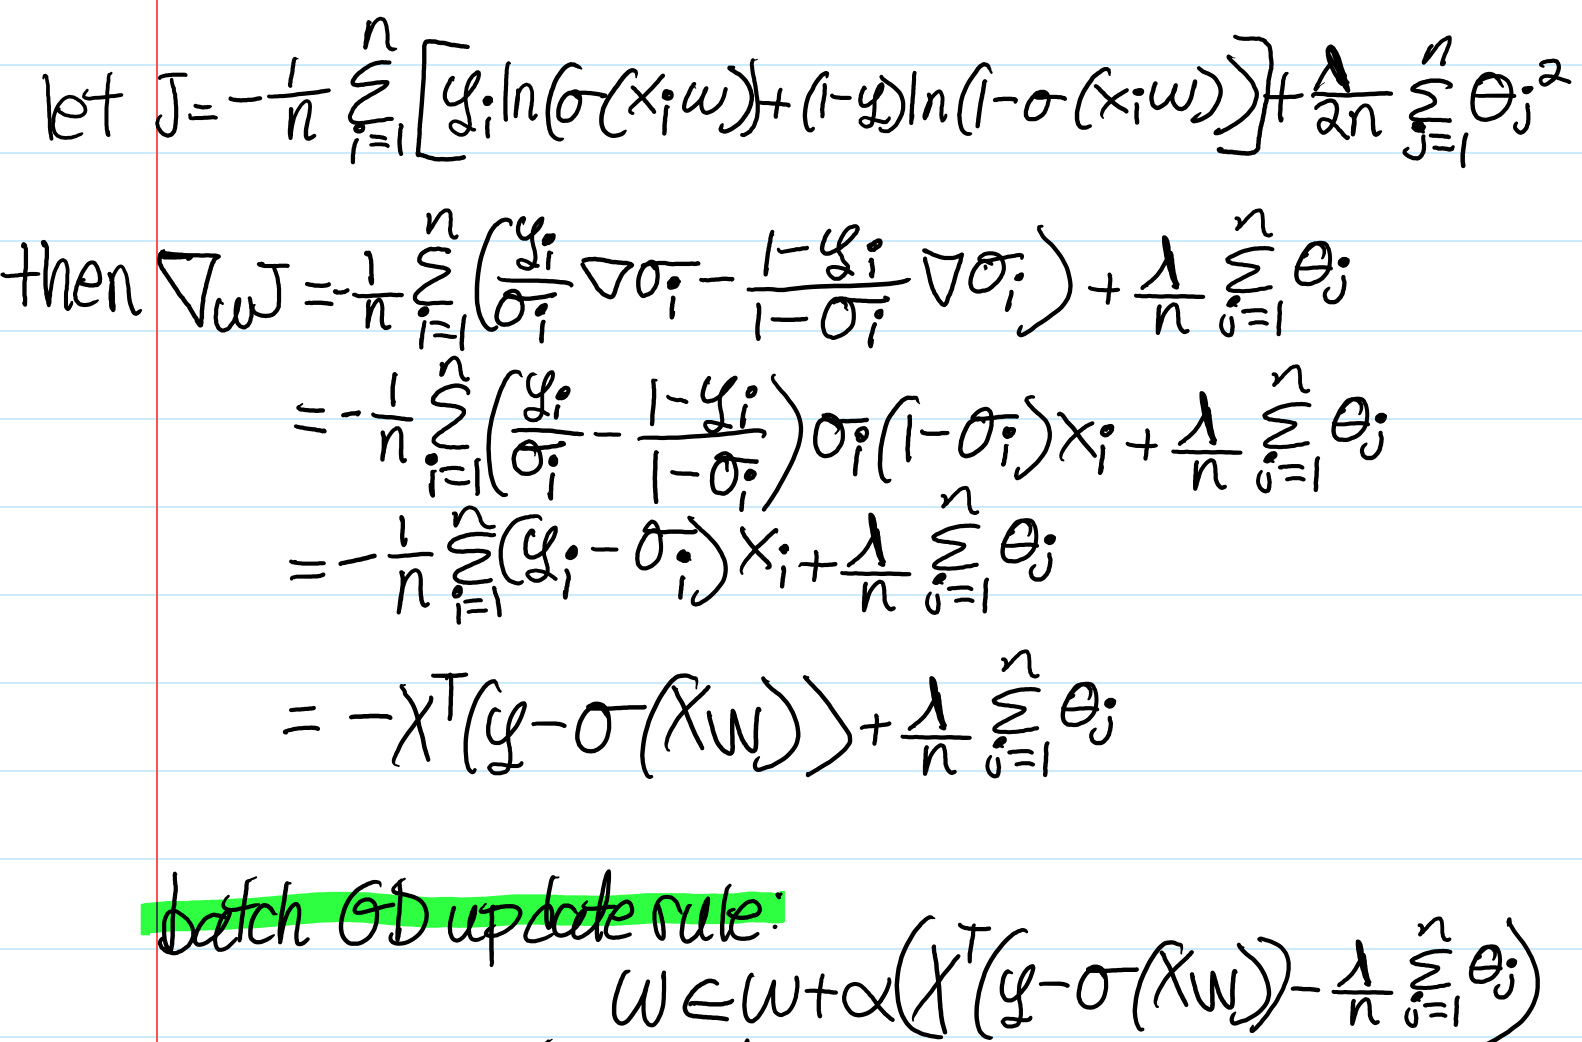 let J = -1/n Σ_{i=1}^{n} [y_i ln(σ(x_i w)) + (1-y) ln(1-σ(x_i w))] + λ/2n Σ_{j=1}^{n} θ_j²
then ∇_w J = -1/n Σ_{i=1}^{n} (y_i/σ_i ∇σ_i - (1-y_i)/(1-σ_i) ∇σ_i) + λ/n Σ_{j=1}^{n} θ_j
= -1/n Σ_{i=1}^{n} (y_i/σ_i - (1-y_i)/(1-σ_i)) σ_i(1-σ_i)x_i + λ/n Σ_{j=1}^{n} θ_j
= -1/n Σ_{i=1}^{n} (y_i - σ_i) x_i + λ/n Σ_{j=1}^{n} θ_j
= -X^T(y - σ(Xw)) + λ/n Σ_{j=1}^{n} θ_j
batch GD update rule:
w ∈ w + α(X^T(y - σ(Xw)) - λ/n Σ_{j=1}^{n} θ_j)